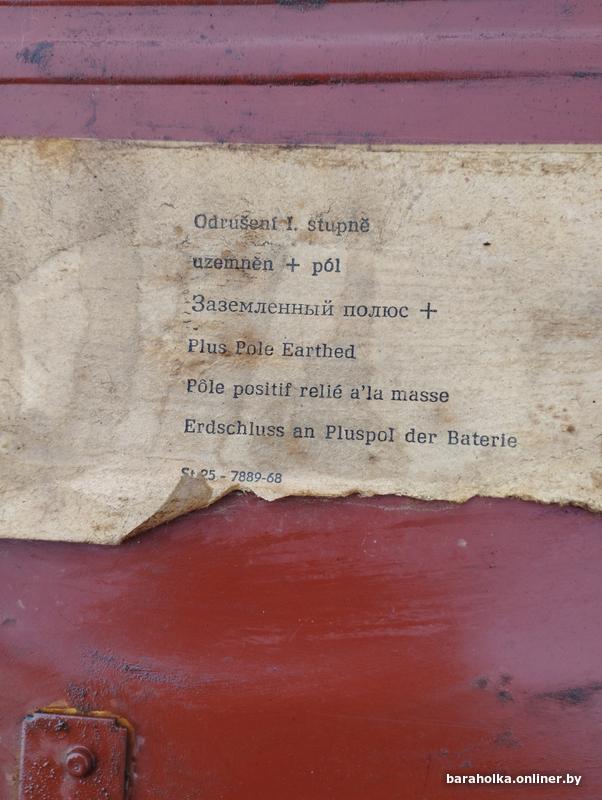 Odrušení I. stupně
uzemněn + pól
Заземленный полюс +
Plus Pole Earthed
Pôle positif relié a'la masse
Erdschluss an Pluspol der Baterie
St 25 - 7889-68
baraholka.onliner.by